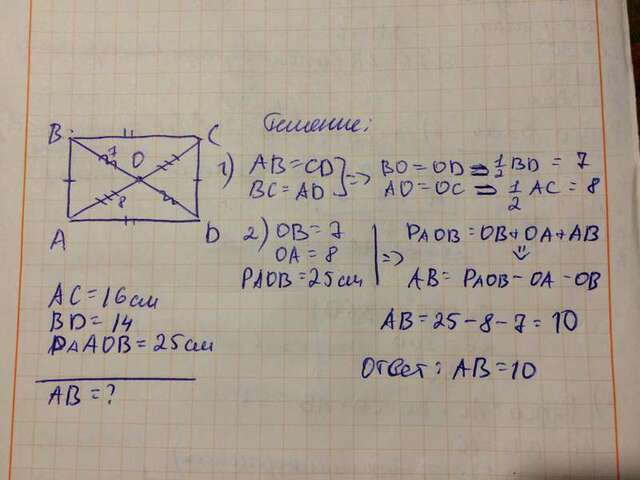 B C
A D
O
7
8
AC = 16 см
BD = 14
PΔAOB = 25 см
AB = ?
Решение:
1) AB = CD ] => BO = OD => 1/2 BD = 7
BC = AD AO = OC => 1/2 AC = 8
2) OB = 7
OA = 8
PΔOB = 25 см | => PAOB = OB + OA + AB
AB = PAOB - OA - OB
AB = 25 - 8 - 7 = 10
Ответ: AB = 10